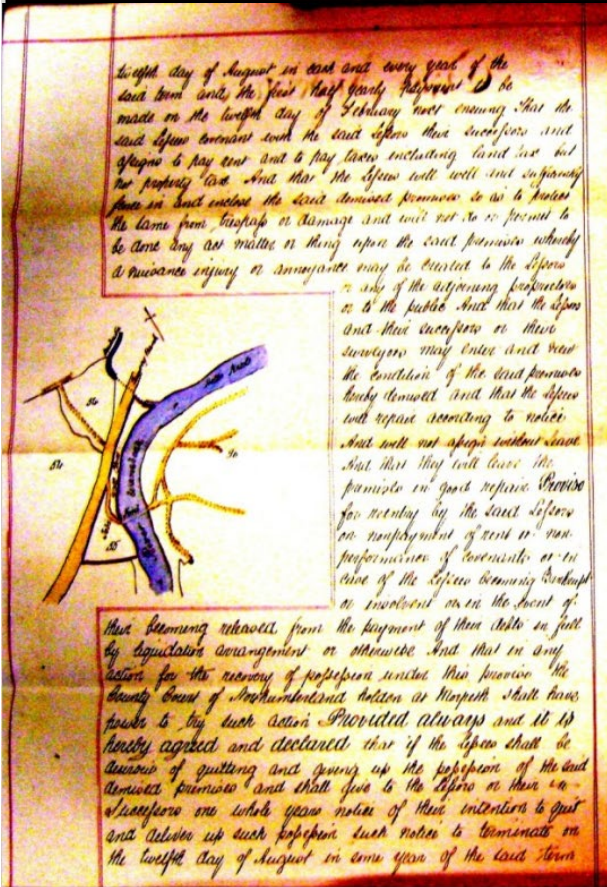 twelfth day of August in each and every year of the
said term and the first half yearly payment to be
made on the twelfth day of February next ensuing That the
said Lessees covenant with the said Lessors their successors and
assigns to pay rent and to pay taxes including land tax but
not property tax And that the Lessees will well and sufficiently
fence in and inclose the said demised premises so as to protect
the same from trespass or damage and will not do or permit to
be done any act matter or thing upon the said premises whereby
a nuisance injury or annoyance may be created to the Lessors
or any of the adjoining proprietors
or to the public And that the Lessors
and their successors or their
surveyors may enter and view
the condition of the said premises
hereby demised and that the Lessees
will repair according to notice
And will not assign without leave
And that they will leave the
premises in good repair Proviso
for reentry by the said Lessors
on nonpayment of rent or non
performance of covenants or in
case of the Lessees becoming Bankrupt
or insolvent or in the event of
their becoming released from the payment of their debts in full
by liquidation arrangement or otherwise And that in any
action for the recovery of possession under this proviso the
County Court of Northumberland holden at Morpeth shall have
power to try such action Provided always and it is
hereby agreed and declared that if the Lessees shall be
desirous of quitting and giving up the possession of the said
demised premises and shall give to the Lessors or their in
Successors one whole years notice of their intention to quit
and deliver up such possession such notice to terminate on
the twelfth day of August in some year of the said term